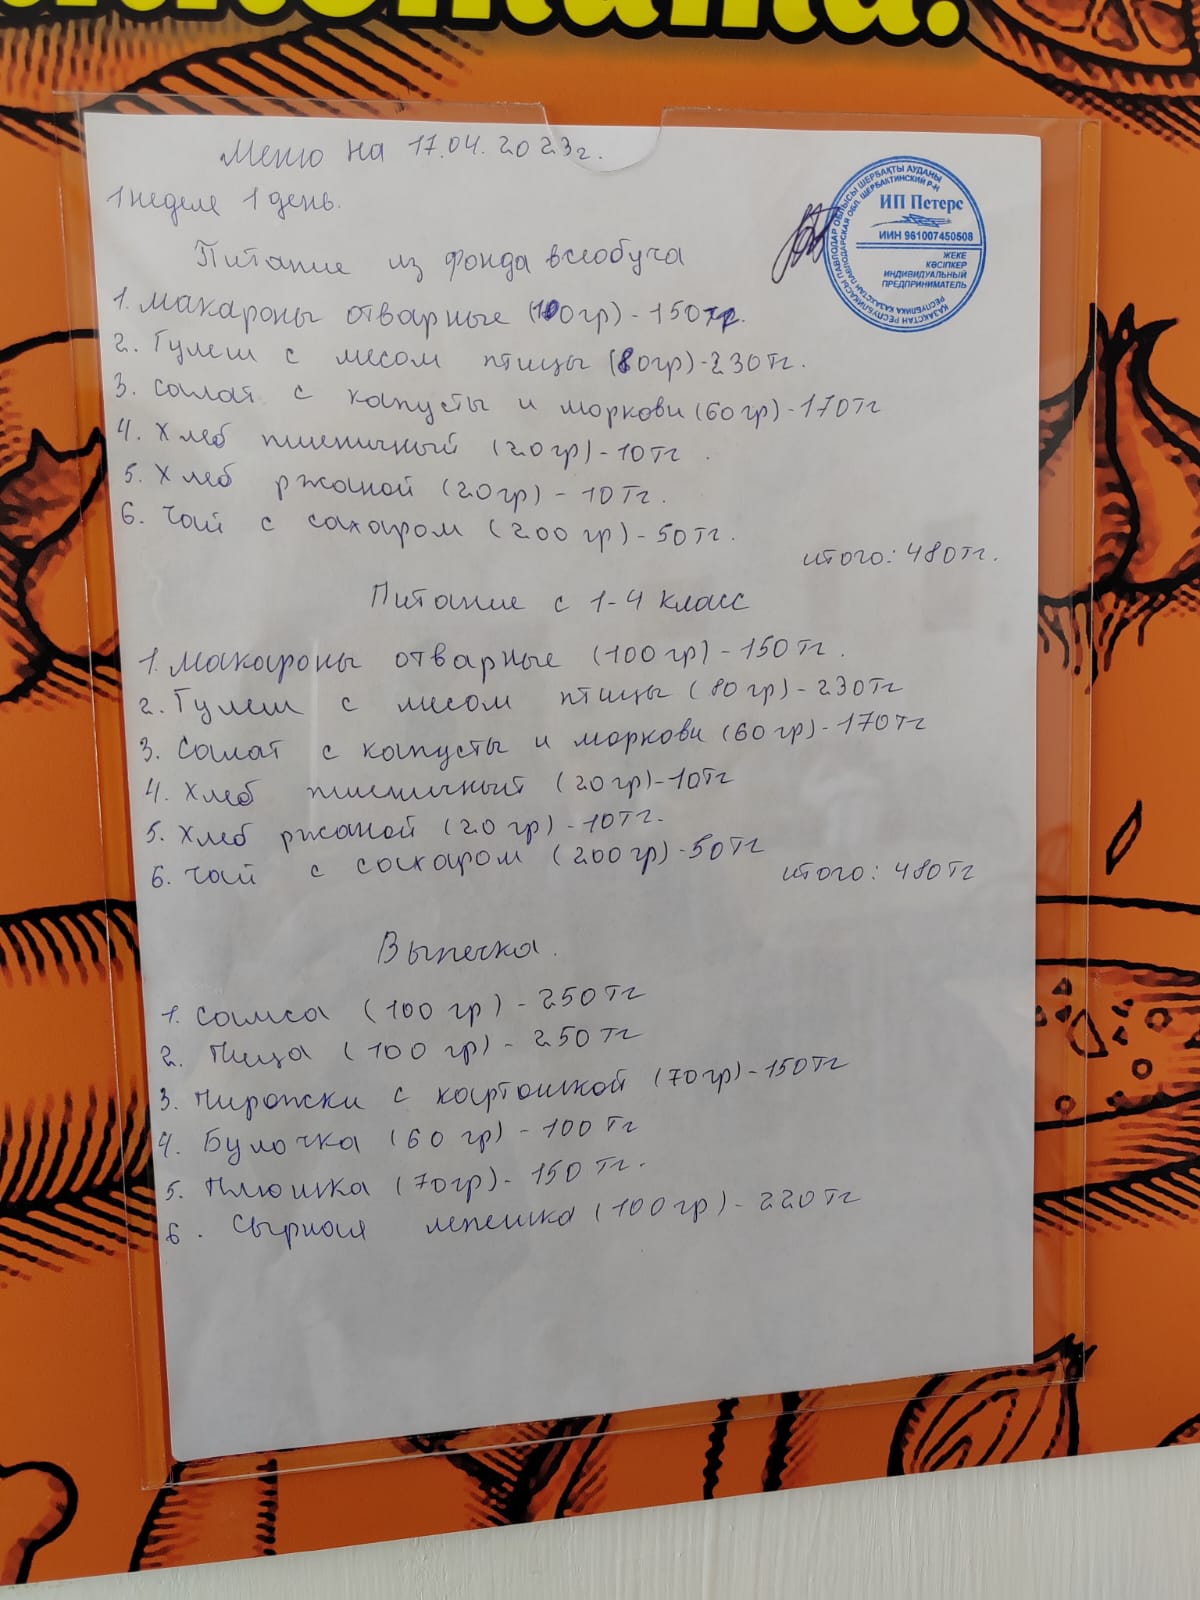 Меню на 17.04.2023г.
1 неделе 1 день.
Питание из фонда всеобуча
1. Макароны отварные (100гр) - 150тг.
2. Гулеш с месом птицы (80гр) - 230тг.
3. Салат с капусты и моркови (60гр) - 170тг
4. Хлеб пшеничный (20гр) - 10тг.
5. Хлеб ржаной (20гр) - 10тг.
6. Чай с сахаром (200гр) - 50тг.
итого: 480тг.
Питание с 1-4 класс
1. Макароны отварные (100гр) - 150тг.
2. Гулеш с месом птицы (80гр) - 230тг
3. Салат с капусты и моркови (60гр) - 170тг
4. Хлеб пшеничный (20гр) - 10тг
5. Хлеб ржаной (20гр) - 10тг.
6. Чай с сахаром (200гр) - 50тг
итого: 480тг
Выпечка.
1. Самса (100гр) - 250тг
2. Пица (100гр) - 250тг
3. Пирожки с картошкой (70гр) - 150тг
4. Булочка (60гр) - 100тг
5. Плюшка (70гр) - 150тг.
6. Сырная лепешка (100гр) - 220тг
ҚАЗАҚСТАН РЕСПУБЛИКАСЫ ПАВЛОДАР ОБЛЫСЫ ШЕРБАҚТЫ АУДАНЫ
РЕСПУБЛИКА КАЗАХСТАН ПАВЛОДАРСКАЯ ОБЛ. ШЕРБАКТИНСКИЙ Р-Н
ИП Петерс
ИИН 961007450508
ЖЕКЕ
КӘСІПКЕР
ИНДИВИДУАЛЬНЫЙ
ПРЕДПРИНИМАТЕЛЬ